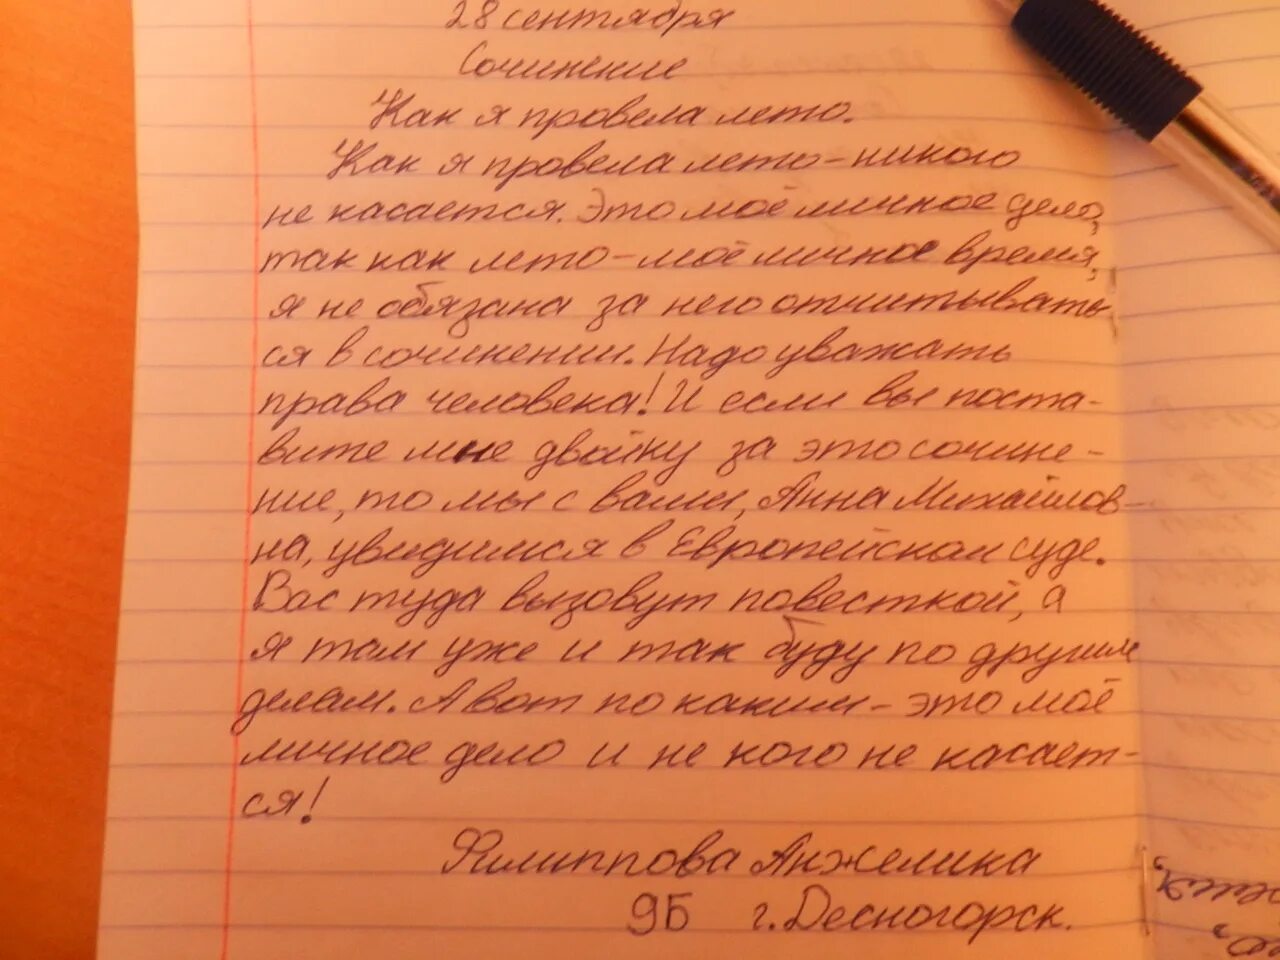 28 сентября
Сочинение
Как я провела лето.
Как я провела лето - никого
не касается. Это моё личное дело,
так как лето - моё личное время,
я не обязана за него отчитывать
ся в сочинении. Надо уважать
права человека! И если вы поста-
вите мне двойку за это сочине-
ние, то мы с вами, Анна Михайлов-
на, увидимся в Европейском суде.
Вас туда вызовут повесткой, а
я там уже и так буду по другим
делам. А вот по каким - это моё
личное дело и не кого не касает-
ся!
Филиппова Анжелика
9Б г. Десногорск.